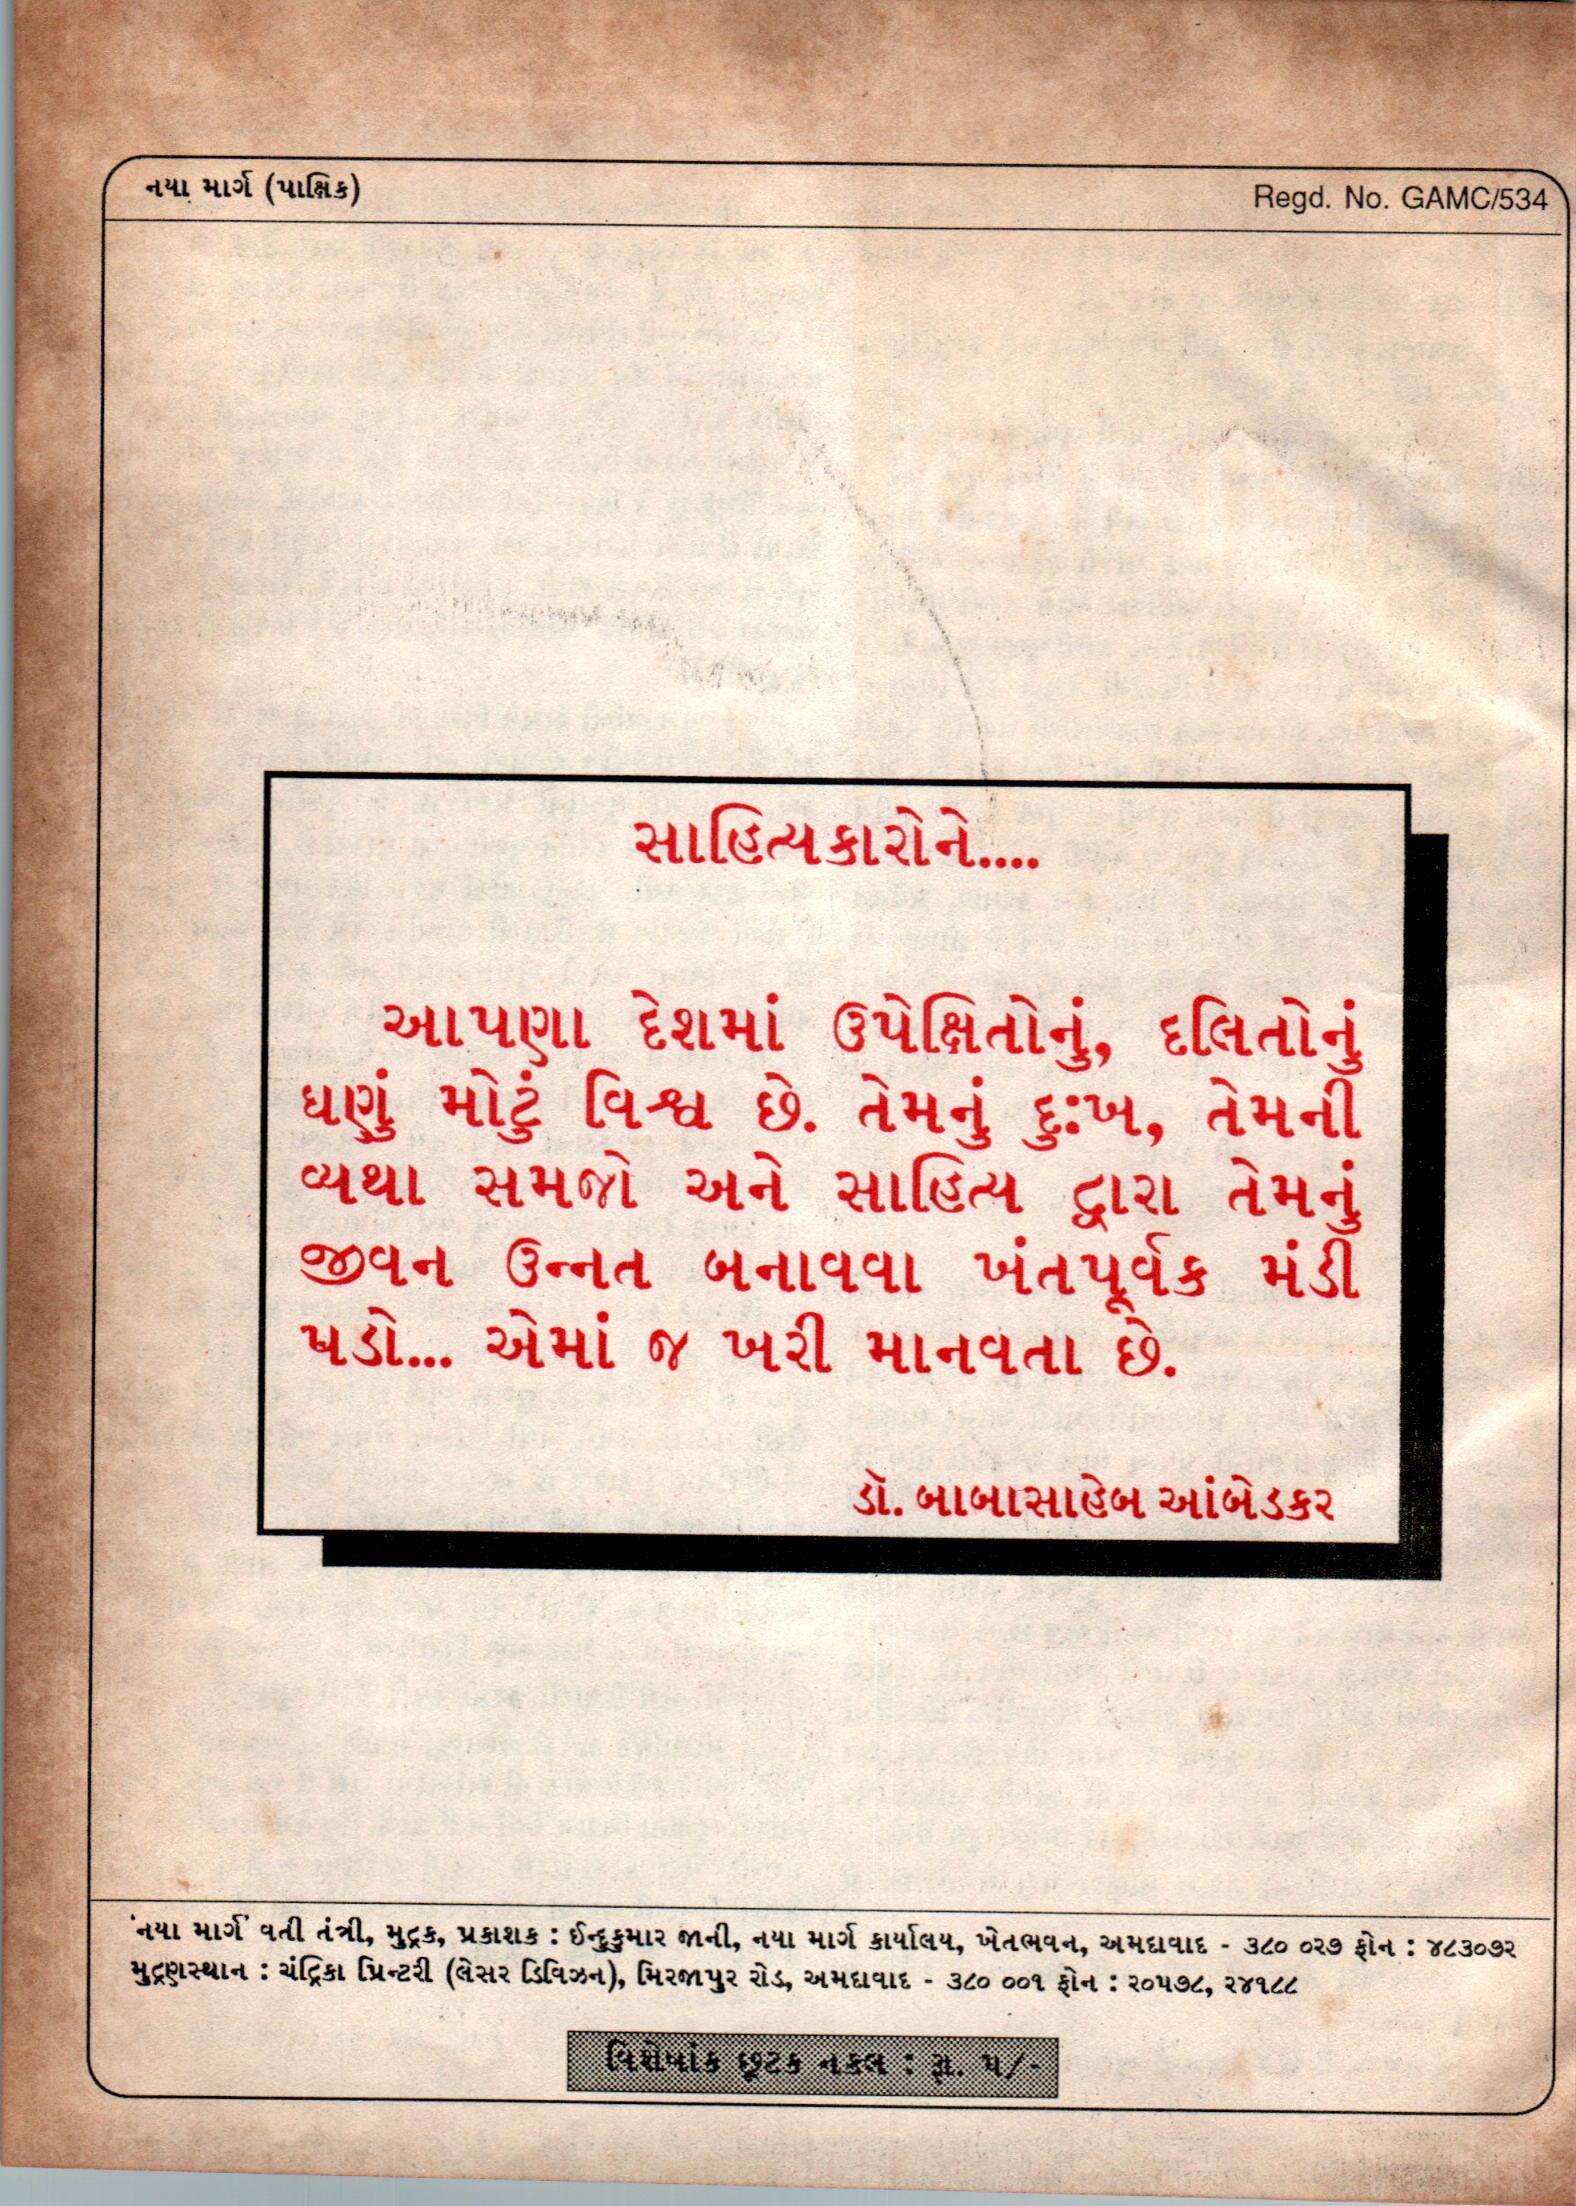 નયા માર્ગ (પાક્ષિક)
Regd. No. GAMC/534
સાહિત્યકારોને....
આપણા દેશમાં ઉપેક્ષિતોનું, દલિતોનું
ઘણું મોટું વિશ્વ છે. તેમનું દુઃખ, તેમની
વ્યથા સમજો અને સાહિત્ય દ્વારા તેમનું
જીવન ઉન્નત બનાવવા ખંતપૂર્વક મંડી
પડો... એમાં જ ખરી માનવતા છે.
ડૉ. બાબાસાહેબ આંબેડકર
'નયા માર્ગ' વતી તંત્રી, મુદ્રક, પ્રકાશક : ઈન્દુકુમાર જાની, નયા માર્ગ કાર્યાલય, ખેતભવન, અમદાવાદ - ૩૮૦ ૦૨૭ ફોન : ૪૮૩૦૭૨
મુદ્રણસ્થાન : ચંદ્રિકા પ્રિન્ટરી (લેસર ડિવિઝન), મિરજાપુર રોડ, અમદાવાદ - ૩૮૦ ૦૦૧ ફોન : ૨૦૫૭૮, ૨૪૧૮૮
વિશેષાંક છૂટક નકલ : રૂા. ૫/-